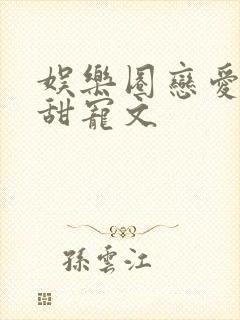 娛樂圈戀愛
甜寵文
孫雲江